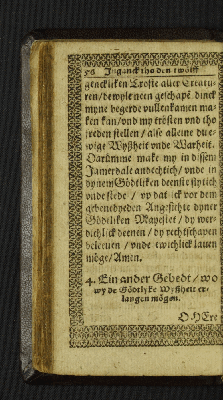 36 Inganck tho den twölff
gencklicken Troste aller Creatu-
ren / dewyle neen geschapē dinck
myne begerde vullenkamen ma-
ken kan / vnd my trösten vnd tho
freden stellen / alse alleine du e-
wige Wyßheit vnde Warheit.
Darümme make my in dissem
Jamerdale andechtich / vnde in
dynem Gödtlyken deenste flytich
vnde stede / vp dat ick vor dem
gebenedyeden Angesichte dyner
Gödtliken Mayestet / dy wer-
dichlick deenen / dy rechtschapen
beleuen / vnde ewichlick lauen
möge / Amen.
4. Ein ander Gebedt / wo
wy de Gödtlyke Wyßheit er-
langen mögen.
O HEre